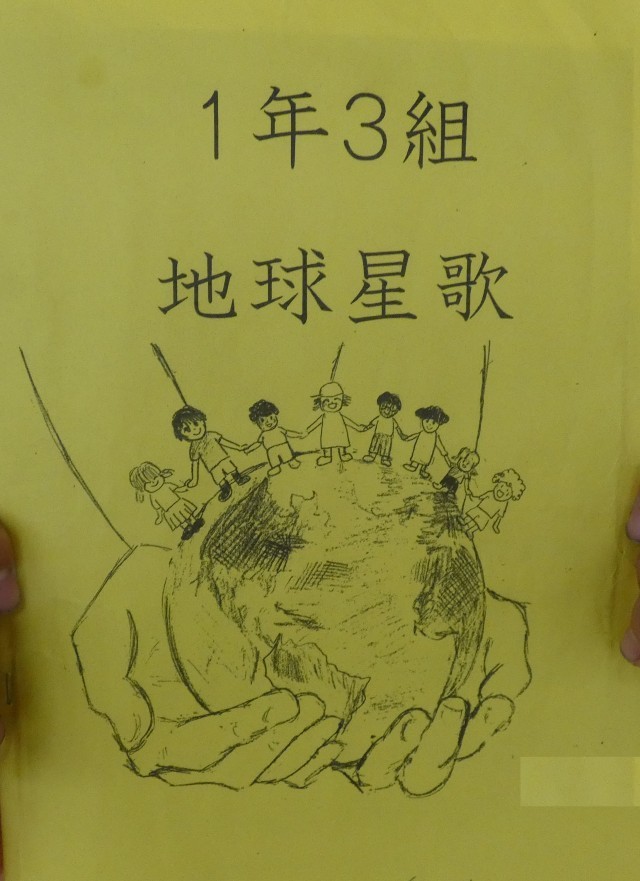 1年3組
地球星歌